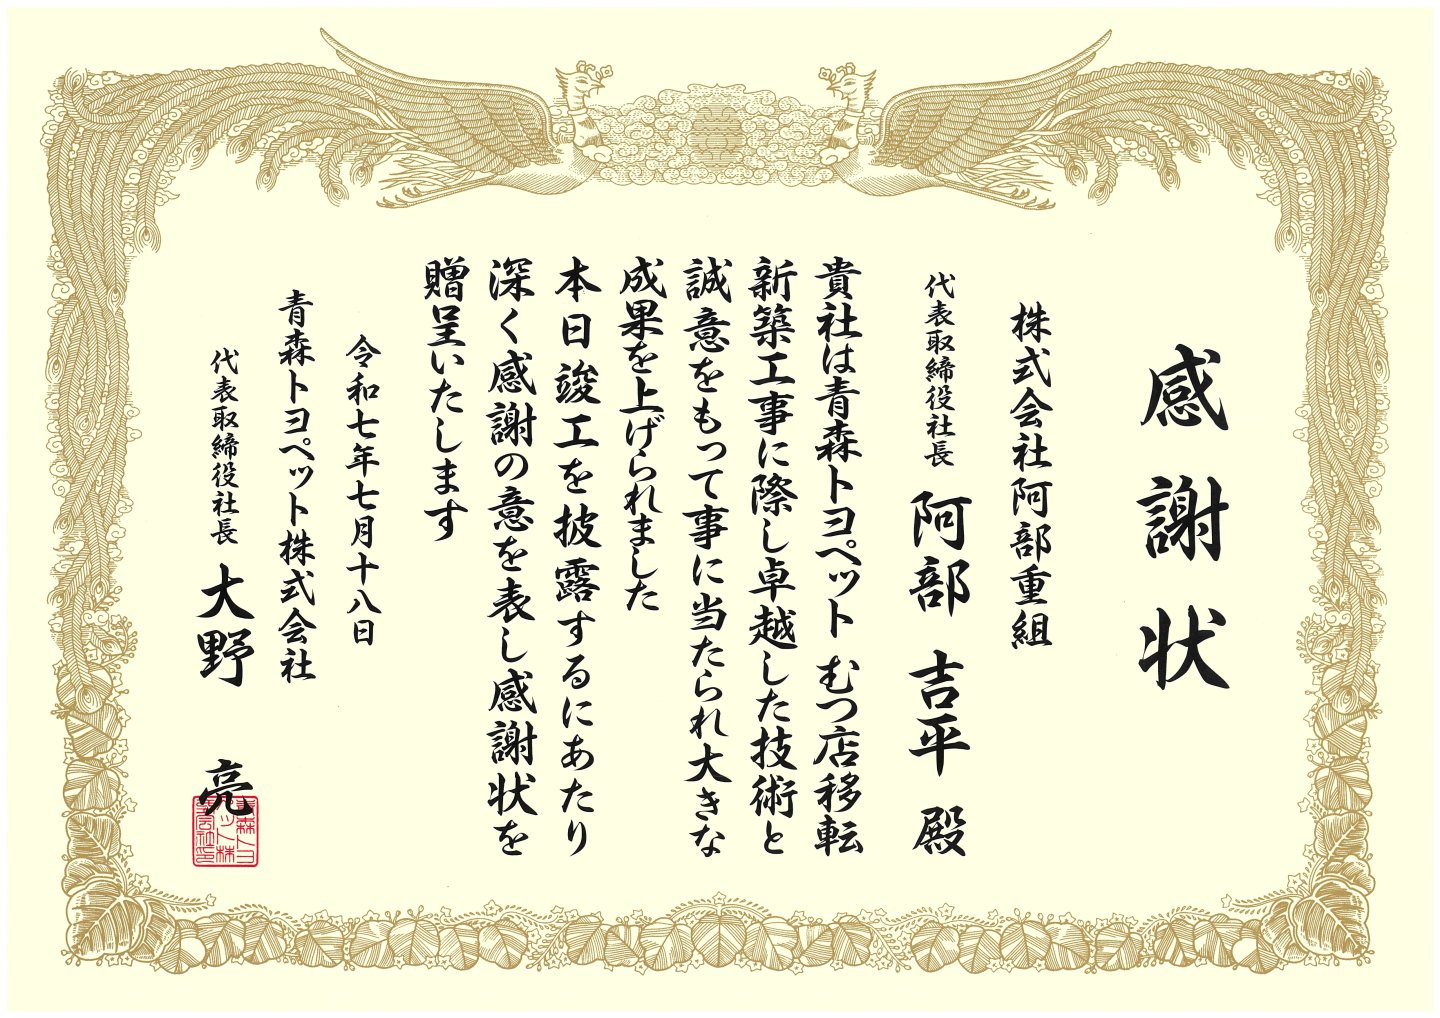 感謝状
株式会社阿部重組
代表取締役社長 阿部 吉平 殿
貴社は青森トヨペット むつ店移転
新築工事に際し卓越した技術と
誠意をもって事に当たられ大きな
成果を上げられました
本日竣工を披露するにあたり
深く感謝の意を表し感謝状を
贈呈いたします
令和七年七月十八日
青森トヨペット株式会社
代表取締役社長 大野 亮
青森トヨペット株式会社印